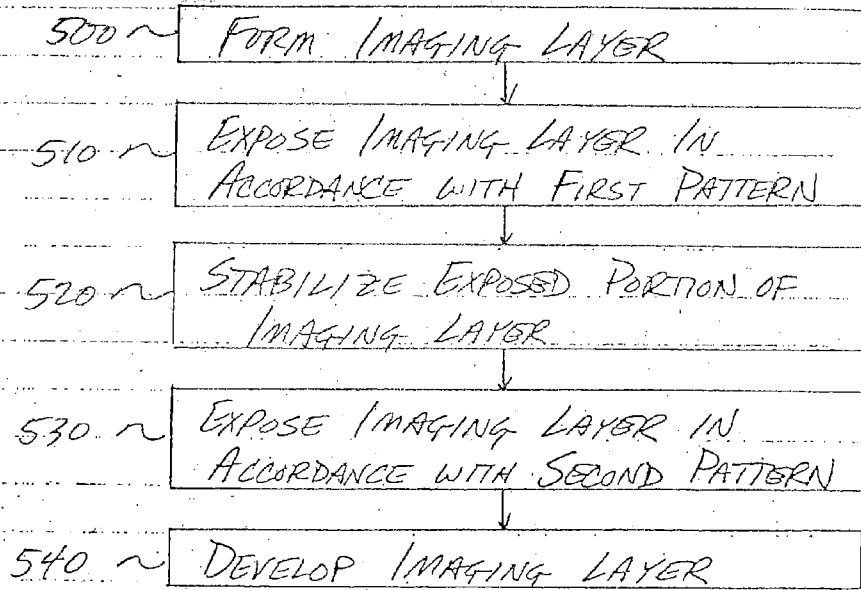 500 ~ FORM IMAGING LAYER
510 ~ EXPOSE IMAGING LAYER IN
ACCORDANCE WITH FIRST PATTERN
520 ~ STABILIZE EXPOSED PORTION OF
IMAGING LAYER
530 ~ EXPOSE IMAGING LAYER IN
ACCORDANCE WITH SECOND PATTERN
540 ~ DEVELOP IMAGING LAYER